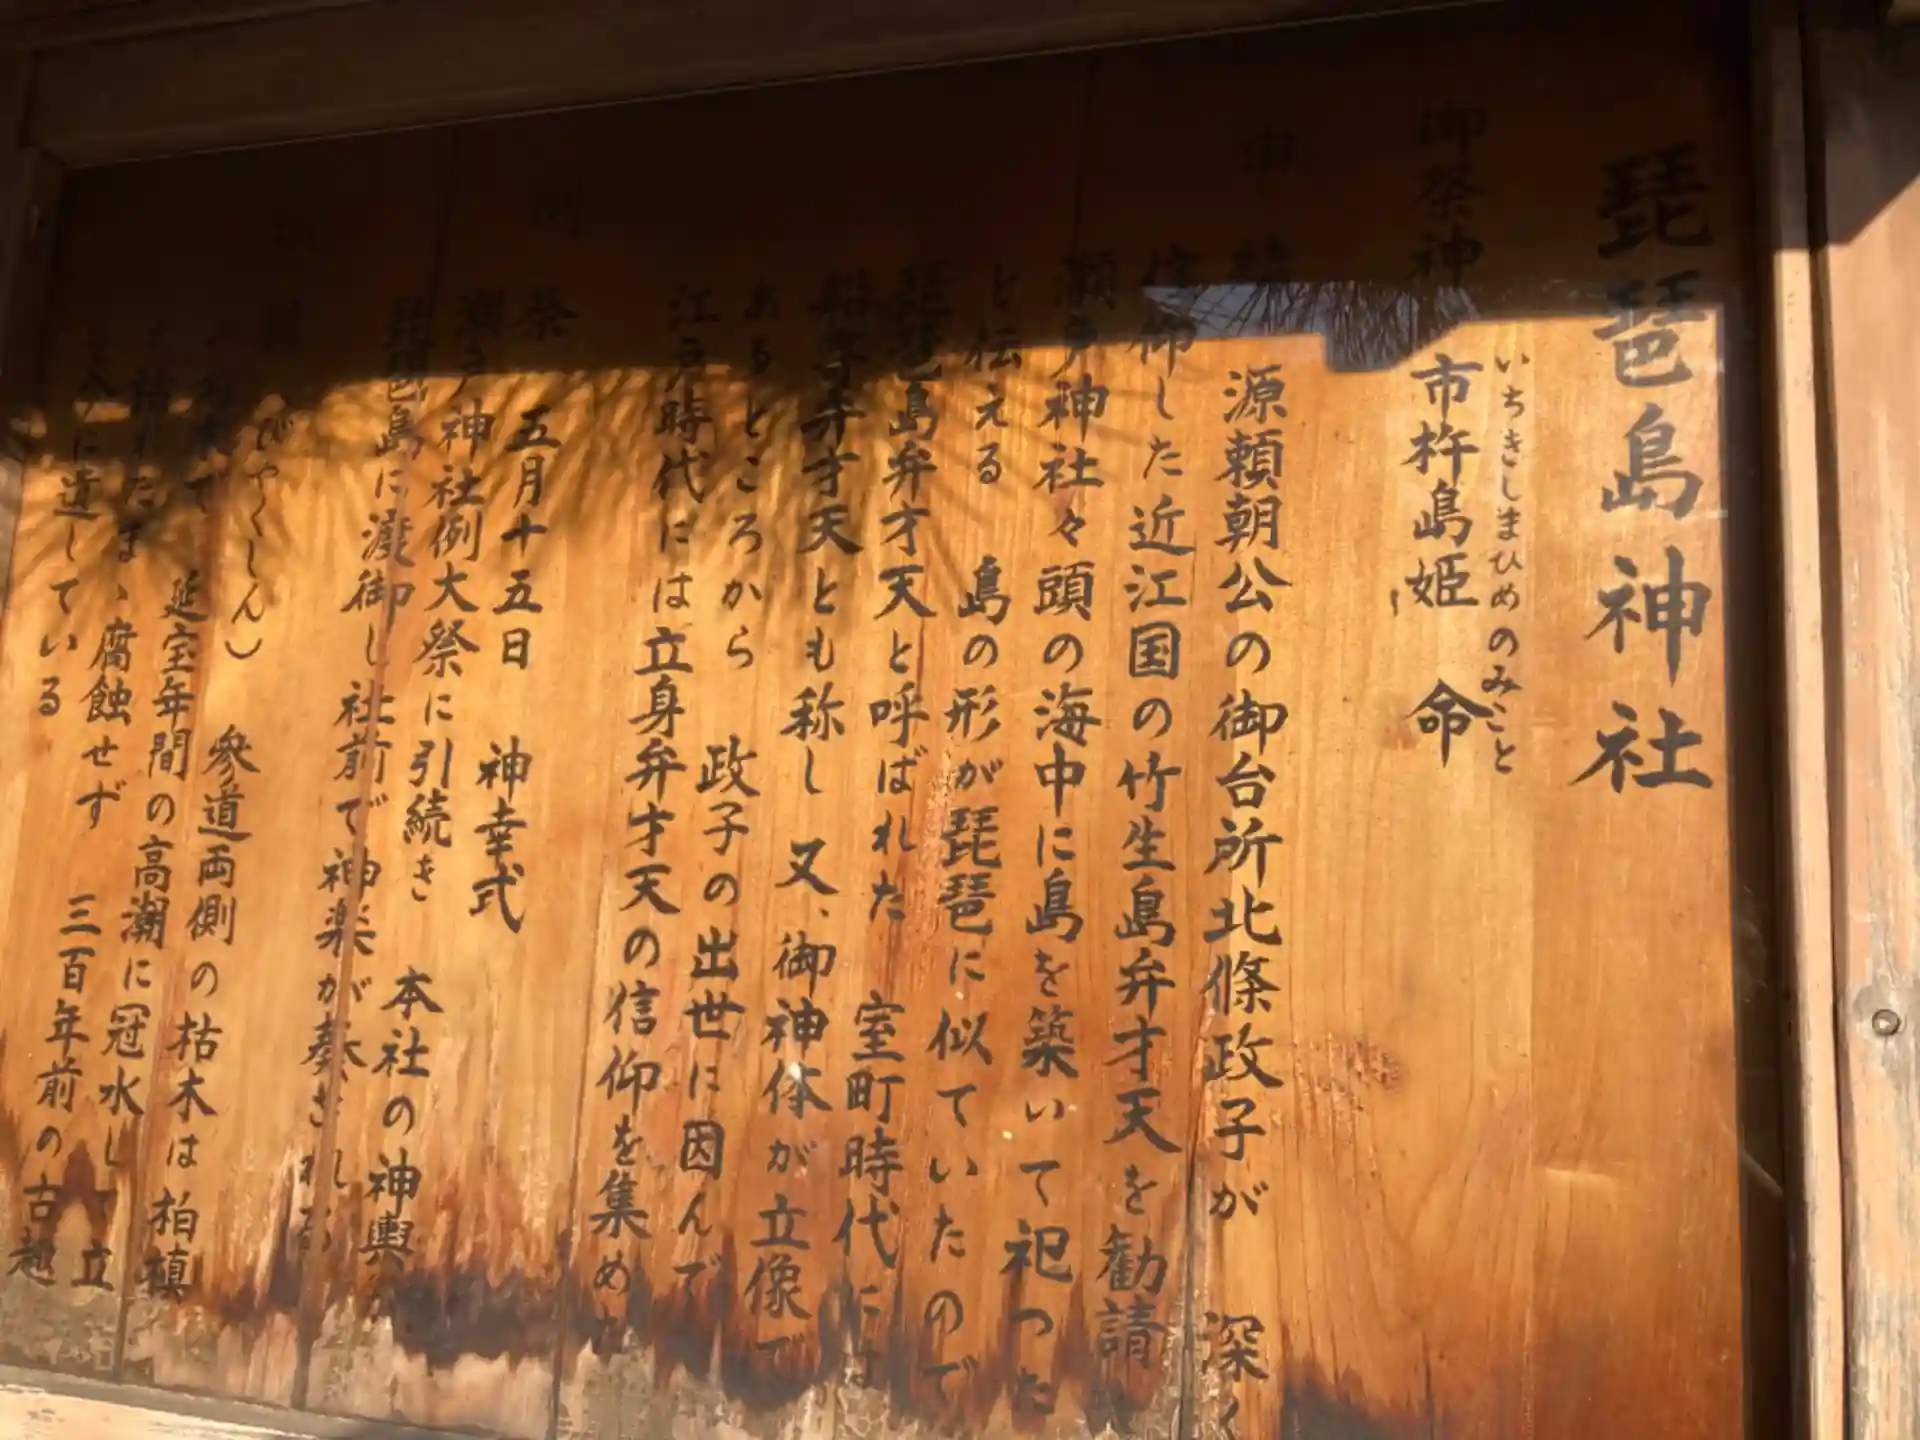 琵琶島神社
御祭神 市杵島姫命
いちきしまひめのみこと
源頼朝公の御台所北條政子が 深く
信仰した近江国の竹生島弁才天を勧請
瀬戸神社々頭の海中に島を築いて祀った
と伝える 島の形が琵琶に似ていたので
琵琶島弁才天と呼ばれた 室町時代には
弁才天とも称し又、御神体が立像で
あるところから 政子の出世に因んで
江戸時代には立身弁才天の信仰を集めた
例祭 五月十五日 神幸式
瀬戸神社例大祭に引続き 本社の神輿が
琵琶島に渡御し 社前で神楽が奏され
びゃくしん)
て 参道両側の枯木は柏槇
延宝年間の高潮に冠水して立
たまゝ腐蝕せず 三百年前の古趣
に達している